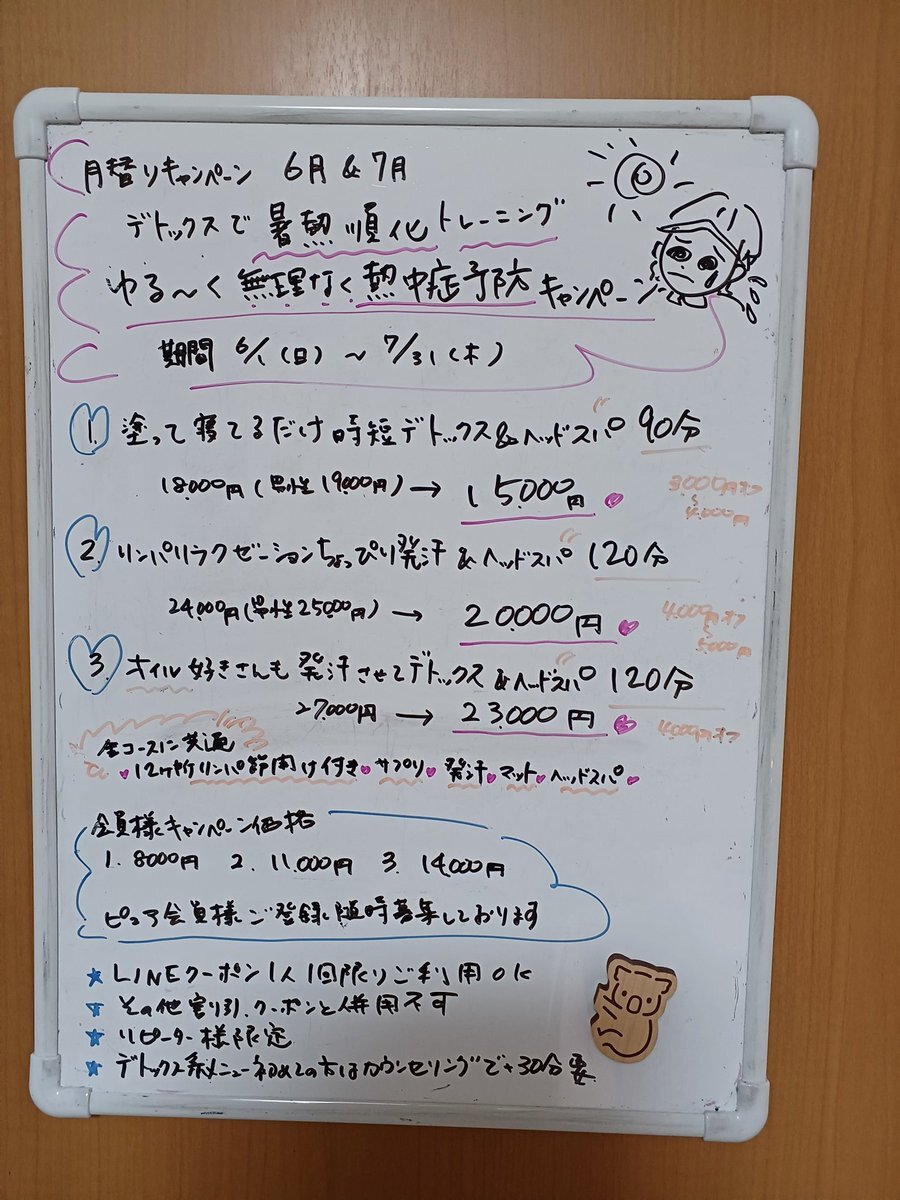 月替りキャンペーン 6月&7月
デトックスで暑熱順化トレーニング
ゆる〜く無理なく熱中症予防キャンペーン
期間 6/1(日)〜7/31(木)
1. 塗って寝てるだけ時短デトックス&ヘッドスパ 90分
18,000円(男性19,000円)→ 15,000円
3,000円オフ
〜
4,000円
2. リンパリラクゼーションちょっぴり発汗&ヘッドスパ 120分
24,000円(男性25,000円)→ 20,000円
4,000円オフ
〜
5,000円
3. オイル好きさんも発汗させてデトックス&ヘッドスパ 120分
27,000円 → 23,000円
4,000円オフ
全コースに共通
♥12ヶ所リンパ節開け付き♥サプリ♥発汗♥マット♥ヘッドスパ♥
会員様キャンペーン価格
1. 8000円 2. 11,000円 3. 14,000円
ピュア会員様ご登録随時募集しております
★LINEクーポン1人1回限りご利用OK
★その他割引、クーポンと併用不可
★リピーター様限定
★デトックス系メニュー初めての方はカウンセリングで+30分要